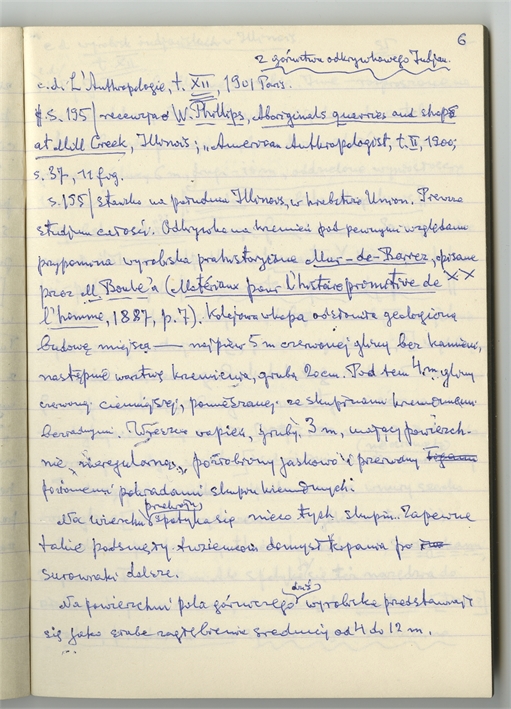 6
z górnictwa odkrywkowego Indjan.
c.d. L'Anthropologie, t. XII, 1901 Paris.
S. 195/ recenzja W. Phillips, Aboriginals quarries and shops
at Mill Creek, Illinois; „American Anthropologist, t. II, 1900;
s. 37, 11 fig.
s. 155/ stawko na południu Illinois, w hrabstwie Union. Pierwsze
studjum całości. Odkrywka na krzemień pod pewnymi względami
przypomina wyrobiska prahistoryczne Mur-de-Barrez, opisane
przez M. Boule'a (Matériaux pour l'histoire primitive de
l'homme, 1887, p. 7). Kolejowa wkopa odsłania geologiczną
budowę miejsca — najpierw 5 m czerwonej gliny bez kamieni,
następnie warstwę krzemienia, grubą 20 cm. Pod tem 4 m gliny
czerwonej ciemniejszej, pomieszanej ze skupinami krzemiennemi
. wapień, gruby 3 m, mający powierzch-
nię nieregularną, i przerwany
poziomemi pokładami skupin kiemiennych.
Na wierzchu spotyka się nieco tych skupin. Zapewne
takie podsunęły tuziemcom domysł kopania po
surowiec dalsze.
Na powierzchni pola górniczego dziś wyrobiska przedstawiają
się jako słabe zagłębienie średnicy od 4 do 12 m.